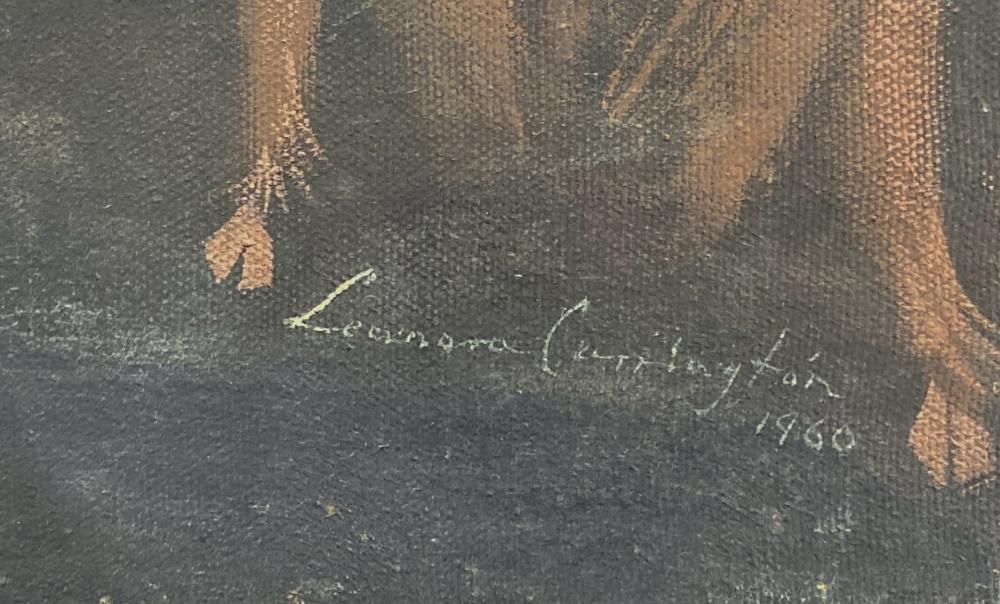 Leonora Carrington
1960